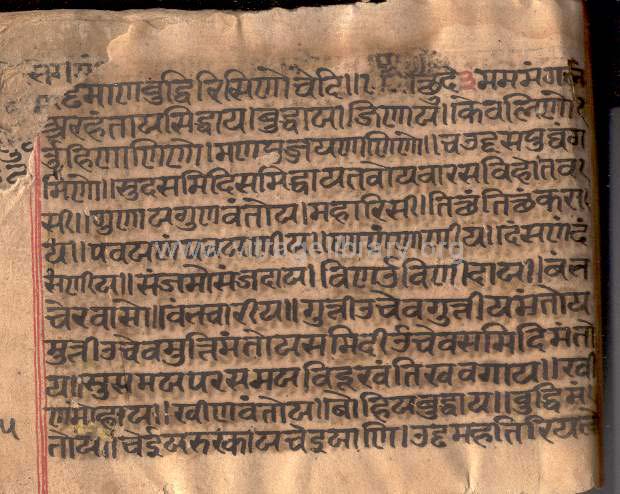 द्दमाणबुद्धिरिसिणो चेदि॥२ ॥छ॥दे३ममममंगलं
अरहंतायसिद्धाय।बुद्धायाजिणाय।केवलिणो
उहिणाणिणो।मणपज्जयणाणिणो॥चउद्दसपुव्वंग
मिणो॥सुदसमिदिसमिद्धायतवोयवारसविहो।तव
सी॥गुणायगुणवंतोय।महारिसी।तित्थंतित्थंकरा
य॥पवय य।णाणंणाणीय।दंसणंदं
सणीय॥संजमोसंजदाय।विणउविणीदाय॥वंभ
चेरवासो॥वंभचारीय॥गुत्तीउचेवगुत्तीयमंतोय
मुत्तीउचेवमुत्तिमंतोयसमिदीउंचेवसमिदिमंतो
य॥सुसमयपरसमयविदूखंतिखवगाय॥खी
णमोहाय॥खीणवंतोय॥बोहियबुद्धाय॥बुद्धिमं
तोय॥चेईयरुरकायचेइयाणि।उद्दमहतिरियलो
५